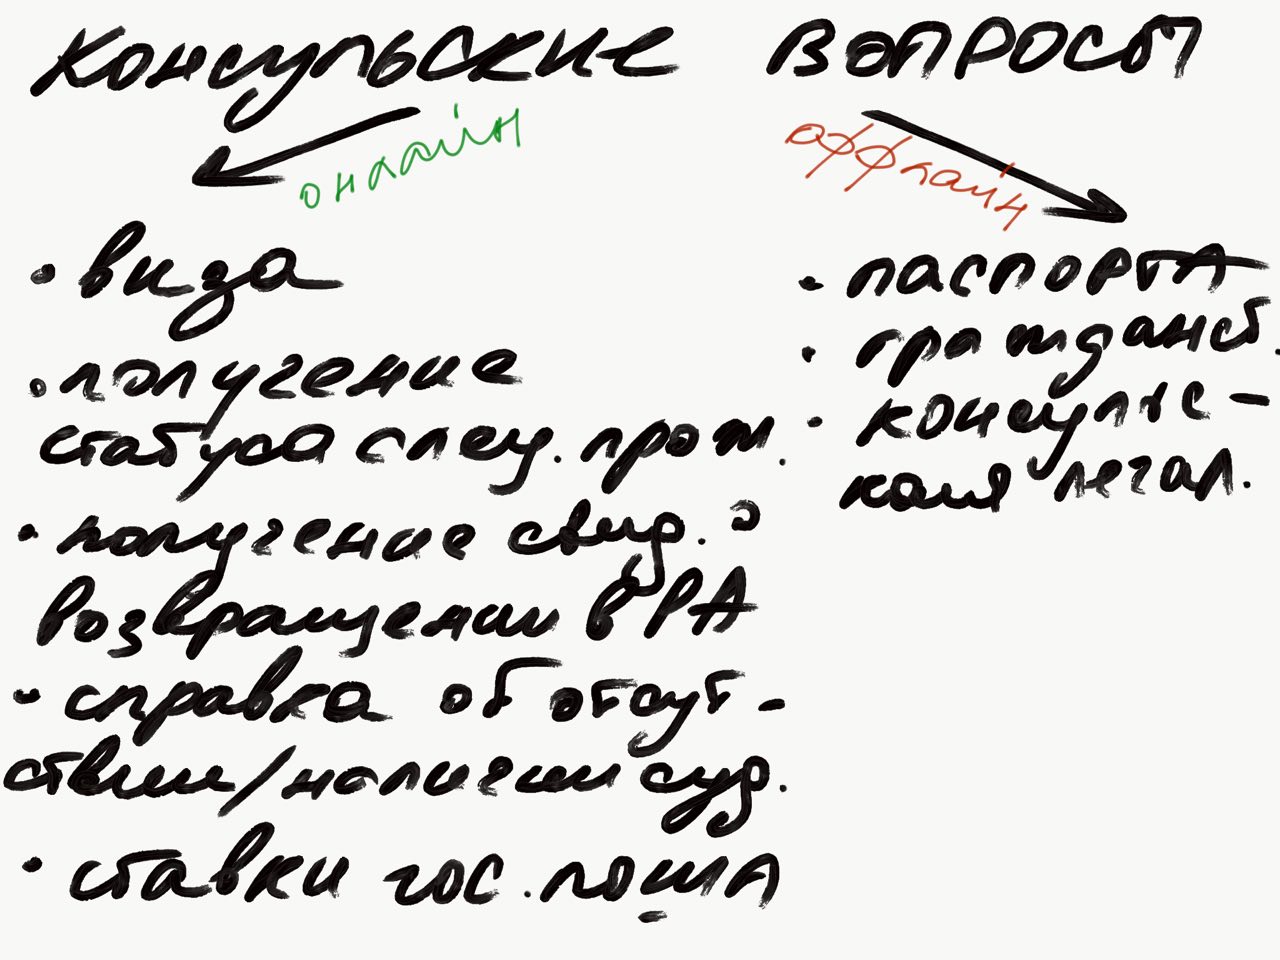 Консульские вопросы
онлайн
оффлайн
• виза
• получение
статуса спец. прож.
• получение свид. о
возвращении в РА
• справка об отсут-
ствии/наличии суд.
• ставки гос. пошл
• паспорта
• гражданст.
• консульс-
кая легал.